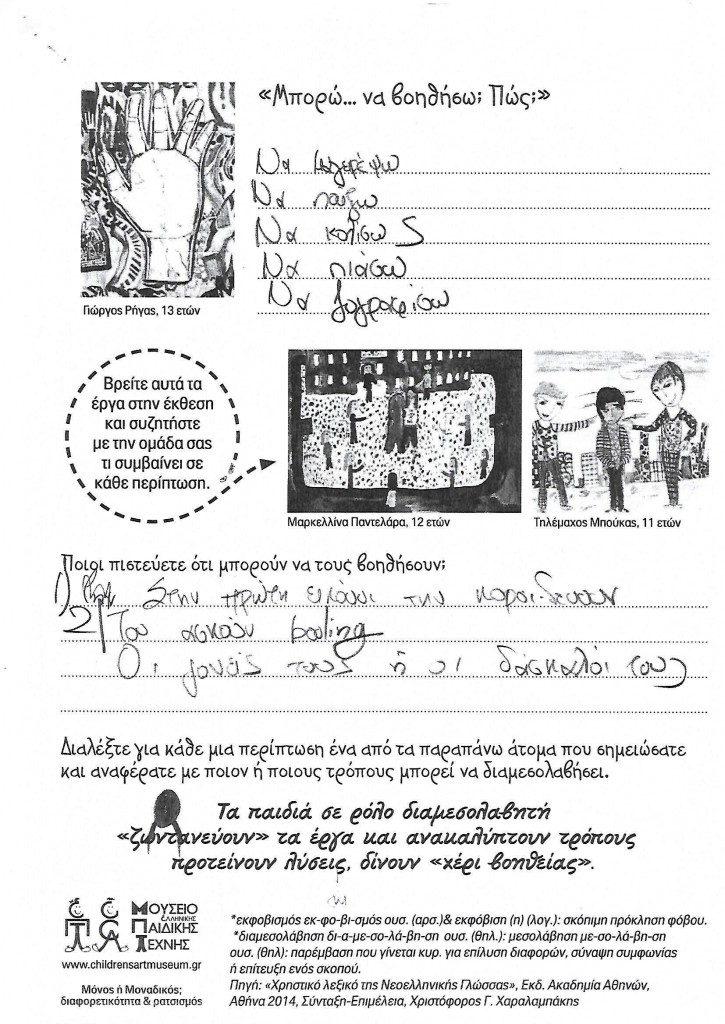 «Μπορώ... να βοηθήσω; Πώς;»
Να μαγειρέψω
Να παίξω
Να
Να πιάσω
Να
Γιώργος Ρήγας, 13 ετών
Βρείτε αυτά τα
έργα στην έκθεση
και συζητήστε
με την ομάδα σας
τι συμβαίνει σε
κάθε περίπτωση.
Μαρκελλίνα Παντελάρα, 12 ετών
Τηλέμαχος Μπούκας, 11 ετών
Ποιοι πιστεύετε ότι μπορούν να τους βοηθήσουν;
1) Στην πρώτη την
2) Του ασκούν
Οι γονείς τους ή οι δάσκαλοί τους
Διαλέξτε για κάθε μια περίπτωση ένα από τα παραπάνω άτομα που σημειώσατε
και αναφέρατε με ποιον ή ποιους τρόπους μπορεί να διαμεσολαβήσει.
Τα παιδιά σε ρόλο διαμεσολαβητή
«ζωντανεύουν» τα έργα και ανακαλύπτουν τρόπους
προτείνουν λύσεις, δίνουν «χέρι βοηθείας».
ΜΟΥΣΕΙΟ
ΕΛΛΗΝΙΚΗΣ
ΠΑΙΔΙΚΗΣ
ΤΕΧΝΗΣ
www.childrensartmuseum.gr
Μόνος ή Μοναδικός;
διαφορετικότητα & ρατσισμός
*εκφοβισμός εκ-φο-βι-σμός ουσ. (αρσ.)& εκφόβιση (η) (λογ.): σκόπιμη πρόκληση φόβου.
*διαμεσολάβηση δι-α-με-σο-λά-βη-ση ουσ. (θηλ.): μεσολάβηση με-σο-λά-βη-ση
ουσ. (θηλ): παρέμβαση που γίνεται κυρ. για επίλυση διαφορών, σύναψη συμφωνίας
ή επίτευξη ενός σκοπού.
Πηγή: «Χρηστικό λεξικό της Νεοελληνικής Γλώσσας», Εκδ. Ακαδημία Αθηνών,
Αθήνα 2014, Σύνταξη-Επιμέλεια, Χριστόφορος Γ. Χαραλαμπάκης